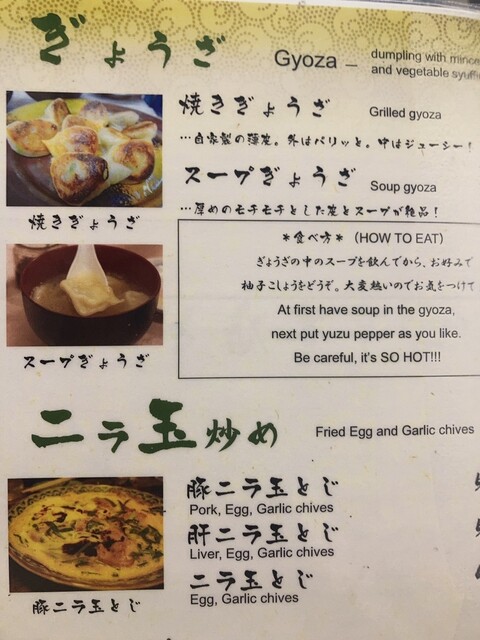 ぎょうざ
Gyoza — dumpling with mince
and vegetable syuffi
焼きぎょうざ Grilled gyoza
…自家製の薄皮。外はパリッと。中はジューシー!
スープぎょうざ Soup gyoza
…厚めのモチモチとした皮とスープが絶品!
焼きぎょうざ
*食べ方* (HOW TO EAT)
ぎょうざの中のスープを飲んでから、お好みで
柚子こしょうをどうぞ。大変熱いのでお気をつけて
At first have soup in the gyoza,
next put yuzu pepper as you like.
Be careful, it's SO HOT!!!
スープぎょうざ
ニラ玉炒め Fried Egg and Garlic chives
豚ニラ玉とじ
Pork, Egg, Garlic chives
肝ニラ玉とじ
Liver, Egg, Garlic chives
ニラ玉とじ
Egg, Garlic chives
豚ニラ玉とじ